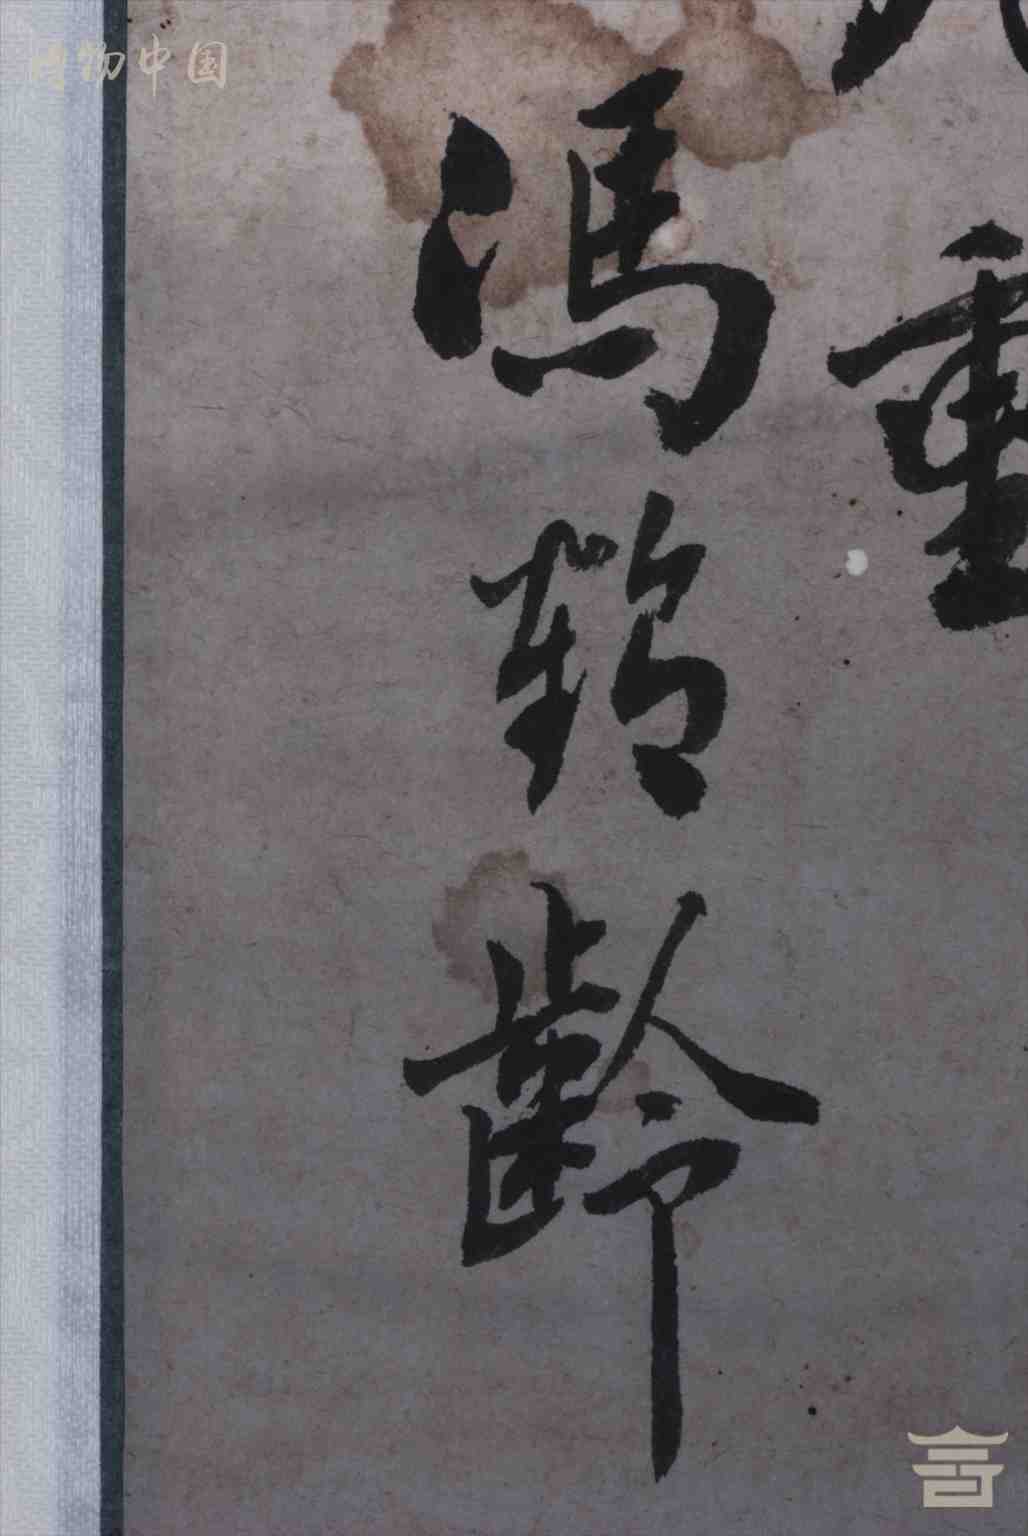 博物中国
重
馮鶴齡